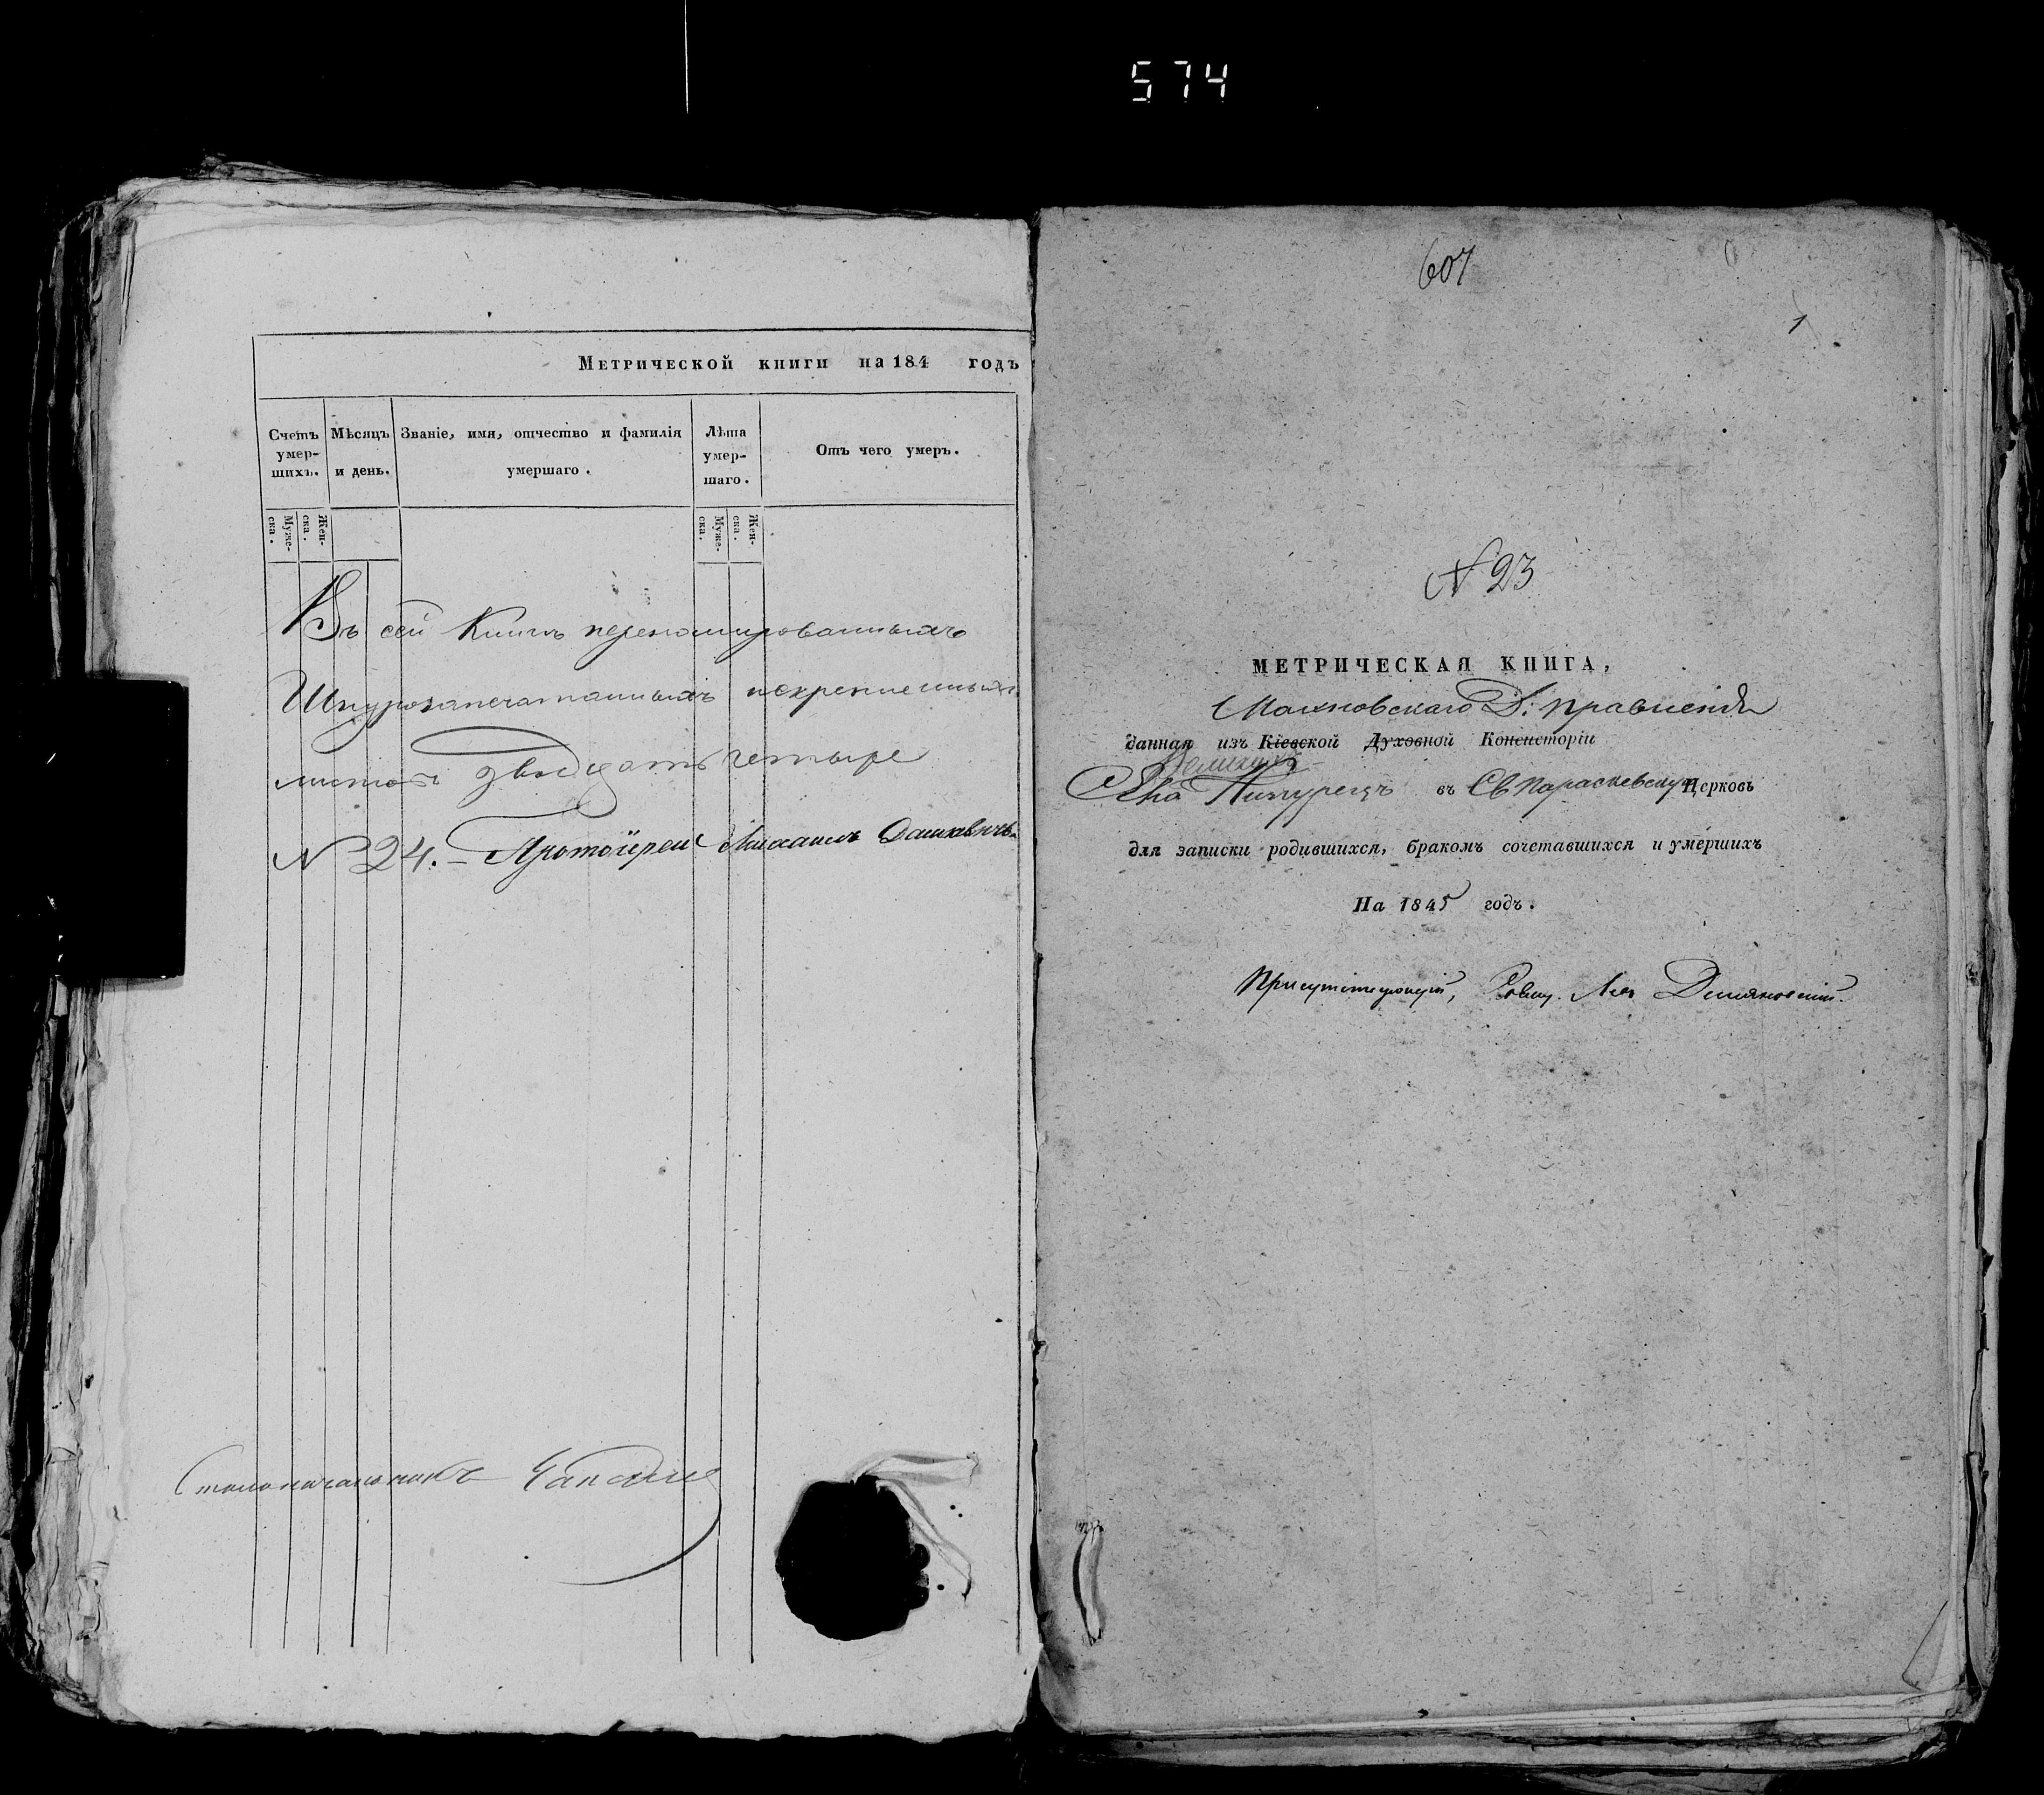 574
Метрической книги на 184 годъ
Счетъ умер-шихъ.
Мѣсяцъ и день.
Званіе, имя, отчество и фамилія умершаго.
Лѣта умер-шаго.
Отъ чего умеръ.
Муже-ска.
Жен-ска.
Муже-ска.
Жен-ска.
Въ сей Книгѣ перенумерованныхъ
Шнурозапечатанныхъ искрепленныхъ
листовъ двадцать четыре
N 24. - Протоіерей Михаилъ Дашкевичъ
Столоначальникъ
607
1
N 23
МЕТРИЧЕСКАЯ КНИГА,
Махновскаго Д: правленія
данная изъ Кіевской Духовной Консисторіи
въ Св Параскевскую Церковь
для записки родившихся, бракомъ сочетавшихся и умершихъ
На 1845 годъ.
Присутствующій,